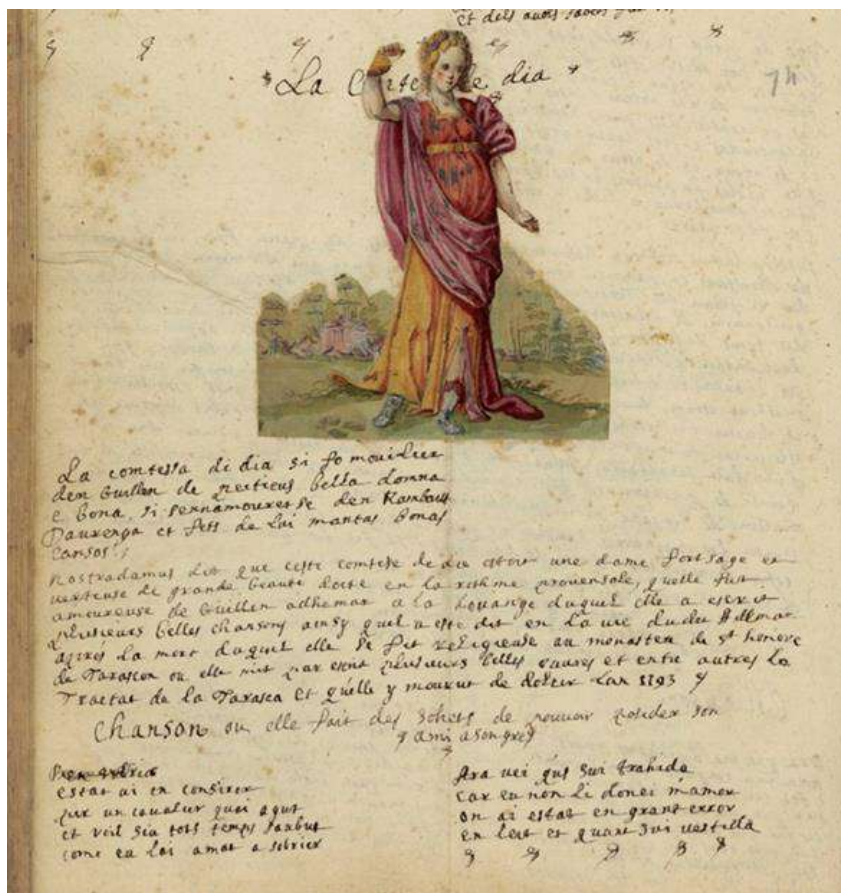 et dels autres
La Contessa de dia
74
La comtessa di dia si fo mouiller
den Guillen de peiticus bella domna
e bona, si sennamouret se den Rambaut
Daurenga et fets de lui mantas bonas
cansos
Nostradamus dit que ceste comtesse de die estoit une dame fort sage et
vertueuse de grande beauté docte en la rithme provensale, quelle fust
amoureuse de Guillen adhemar a la louange duquel elle a escrit
plusieurs belles chansons ainsy quil a esté dit en la vie dudit Adhemar
apres la mort duquel elle se fit religieuse au monastere de st honore
de Tarascon ou elle mit par escrit plusieurs belles euures et entre autres lo
Tractat de la Tarasca et quelle y mourut de doleur lan 1193
Chanson ou elle fait des de pouvoir posseder son
ami a son gre
estat ai en consirer
per un cavalier quai agut
et voil sia tots temps saubut
come eu lai amat a sobrier
Ara vei qus sui trahida
car eu non li donei mamor
on ai estat en grant error
en leit et quant sui vestida